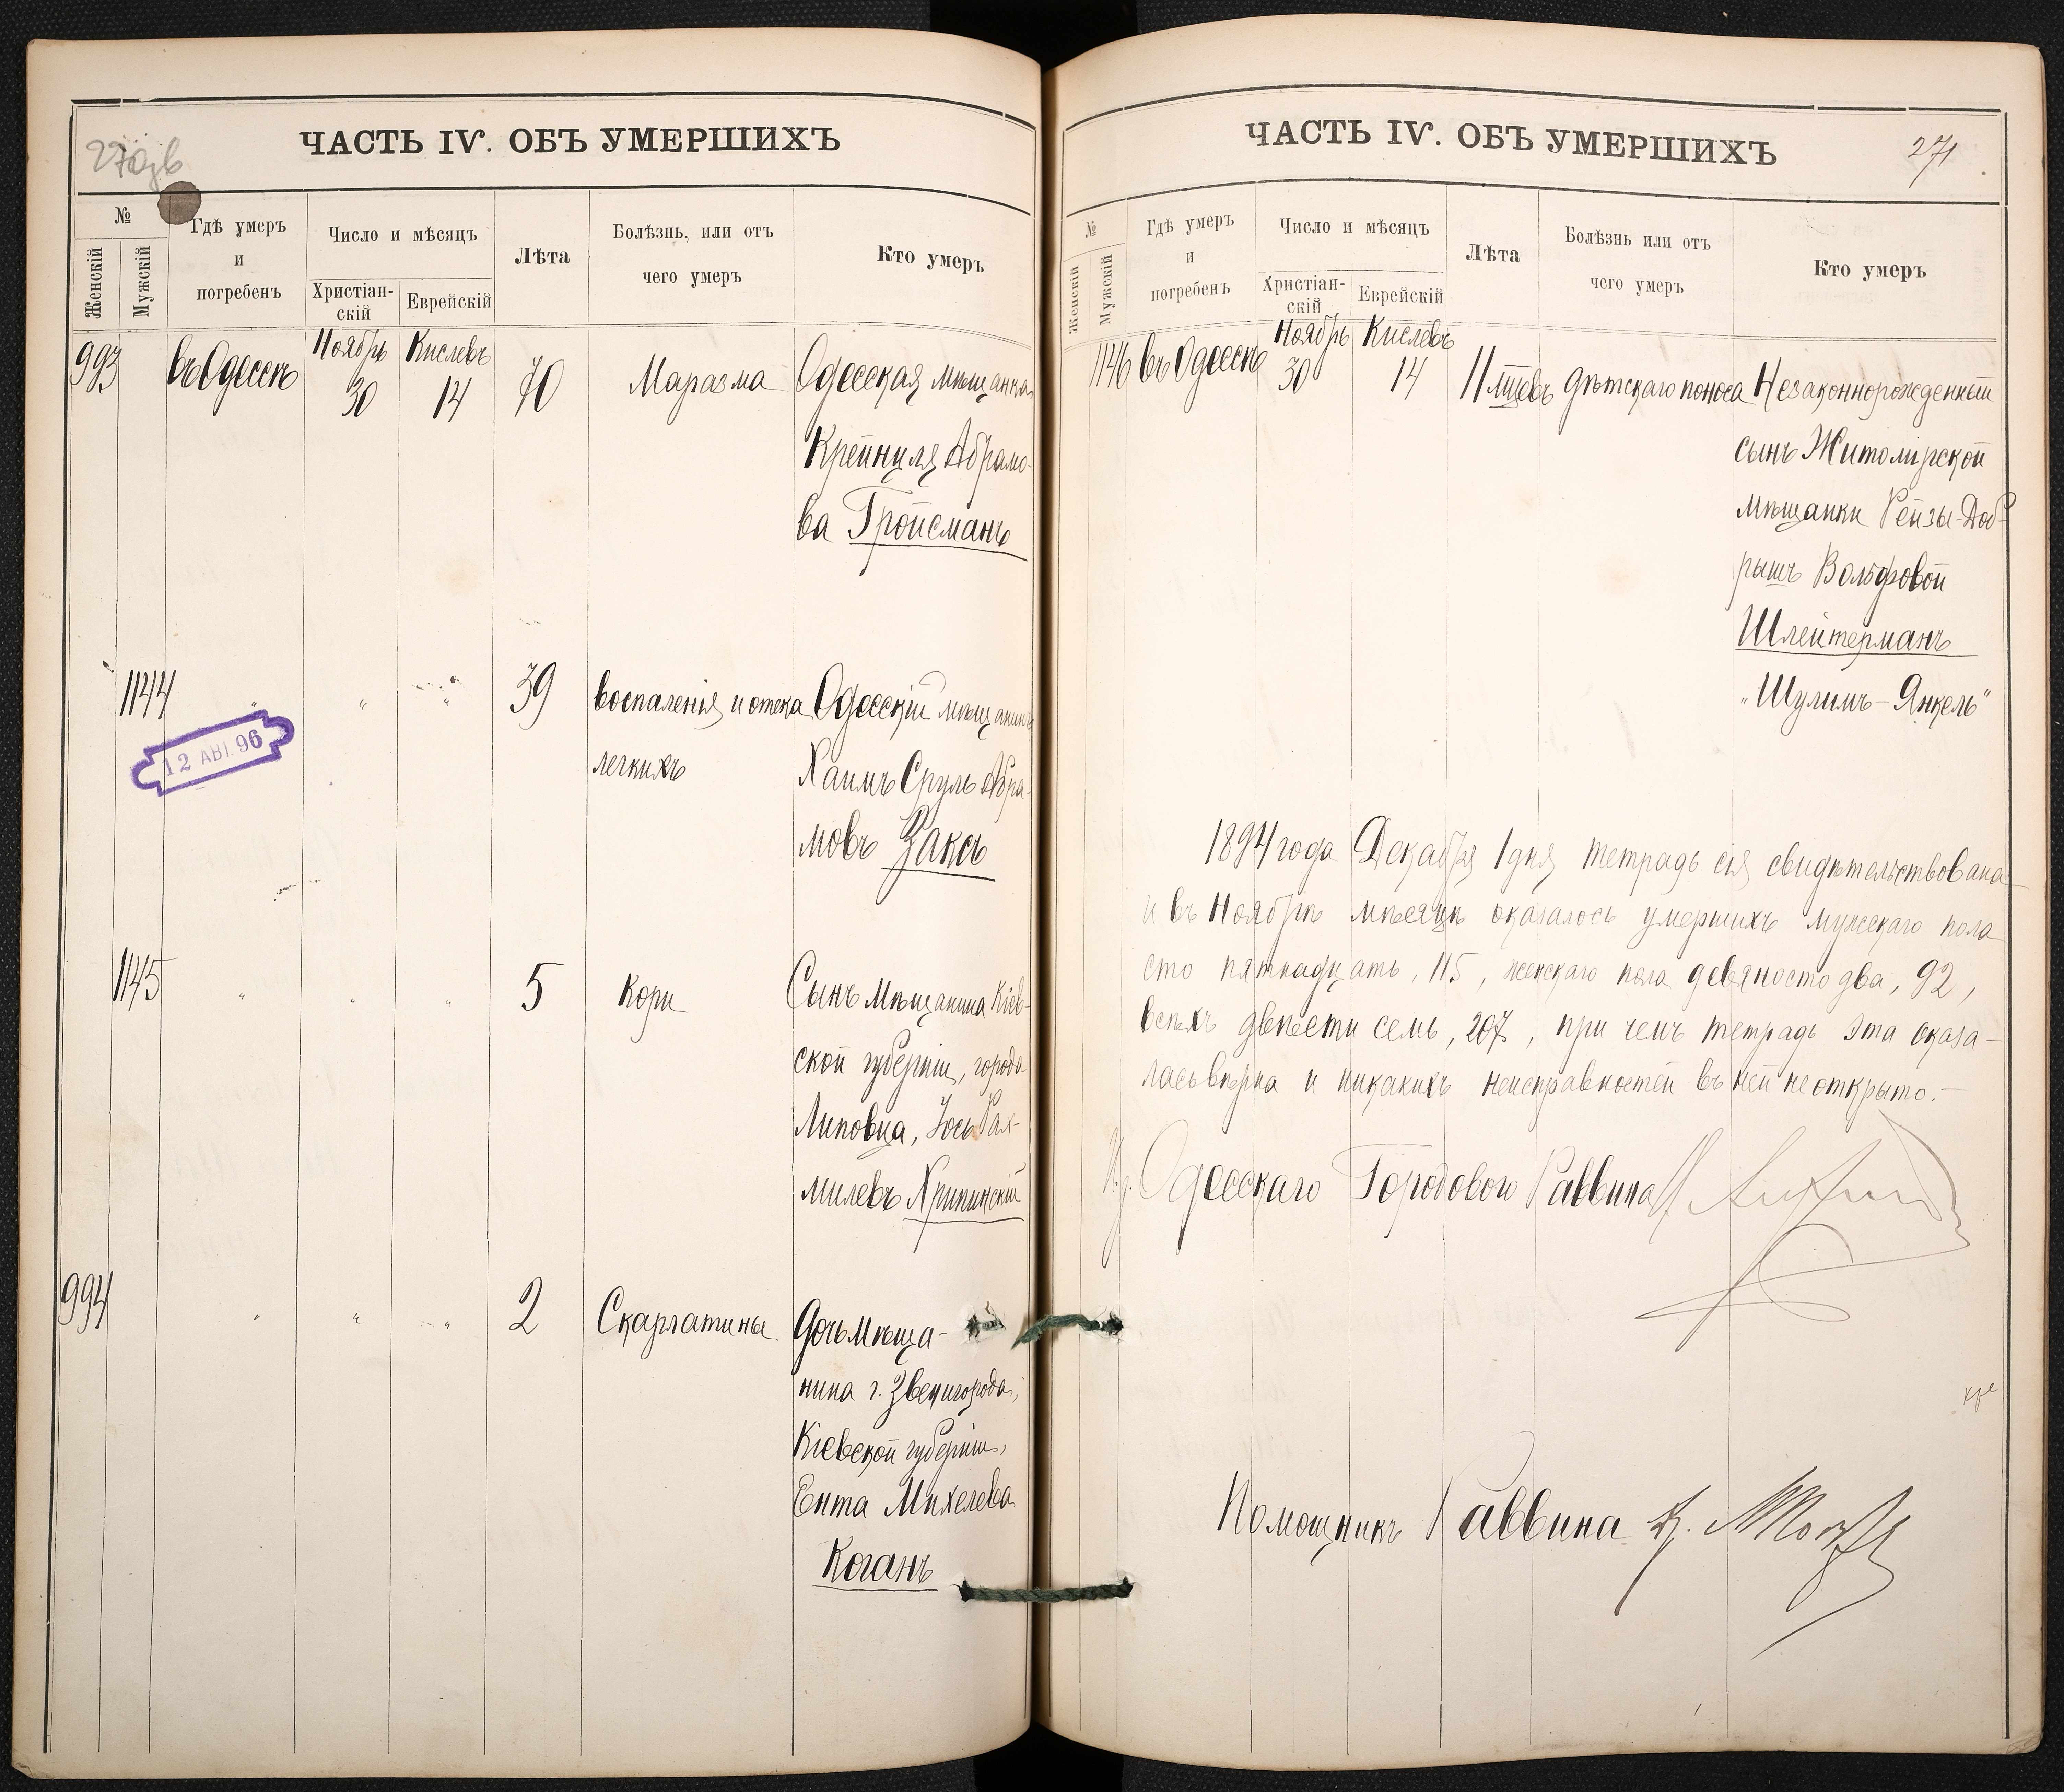 270зв
ЧАСТЬ IV. ОБЪ УМЕРШИХЪ
№
Женскій
Мужскій
Гдѣ умеръ
и
погребенъ
Число и мѣсяцъ
Христіан-
скій
Еврейскій
Лѣта
Болѣзнь, или отъ
чего умеръ
Кто умеръ
Ноябрь Кислевъ
993 въ Одессѣ 30 14 70 Маразма Одесская мѣщанка
Крейнцля Абрамо-
ва Гройсманъ
1144 " " " 39 воспаленія и отека Одесскій мѣщанинъ
легкихъ Хаимъ Сруль Абра-
мовъ Заксъ
12 АВГ. 96
1145 " " " 5 Кори Сынъ мѣщанина Кіев-
ской губерніи, города
Липовца, Іось Рах-
милевъ Хрипинскій
994 " " " 2 Скарлатины Дочь мѣща-
нина г. Звенигорода,
Кіевской губерніи,
Ента Михелева
Коганъ
ЧАСТЬ IV. ОБЪ УМЕРШИХЪ
271
№
Женскій
Мужскій
Гдѣ умеръ
и
погребенъ
Число и мѣсяцъ
Христіан-
скій
Еврейскій
Лѣта
Болѣзнь или отъ
чего умеръ
Кто умеръ
Ноябрь Кислевъ
1146 въ Одессѣ 30 14 11 мцевъ дѣтскаго поноса Незаконнорожденный
сынъ Житомірской
мѣщанки Рейзы-Доб-
рышъ Вольфовой
Шлейтерманъ
"Шулимъ-Янкель"
1894 года Декабря 1 дня тетрадь сія свидѣтельствована
и въ Ноябрѣ мѣсяцѣ оказалось умершихъ мужскаго пола
сто пятнадцать, 115, женскаго пола девяносто два, 92,
всѣхъ двѣсти семь, 207, при чемъ тетрадь эта оказа-
лась вѣрна и никакихъ неисправностей въ ней не открыто.-
И. д. Одесскаго Городового Раввина
Помощникъ Раввина